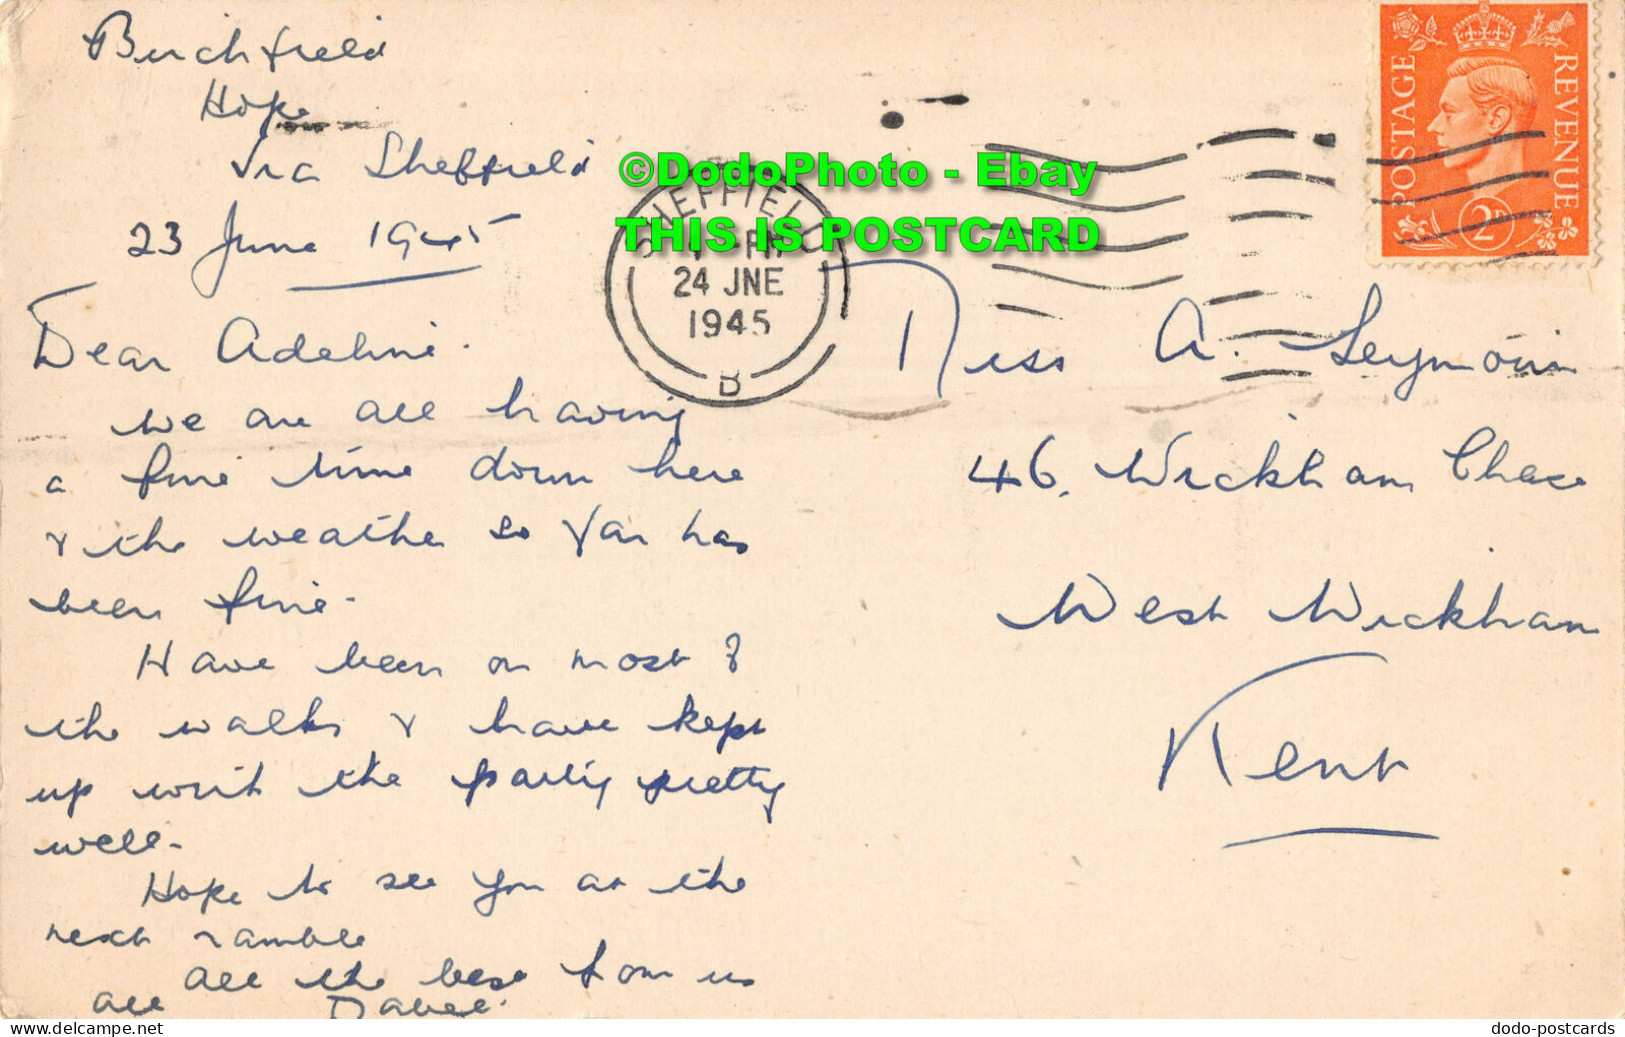 Birchfield
Hope
Via Sheffield
23 June 1945
Dear Adeline.
We are all having
a fine time down here
& the weather so far has
been fine.
Have been on most of
the walks & have kept
up with the party pretty
well.
Hope to see you at the
next ramble
All the best from us
all
SHEFFIELD
PM
24 JNE
1945
B
POSTAGE
REVENUE
2D
Miss A. Seymour
46, Wickham Chase
West Wickham
Kent
©DodoPhoto - Ebay
THIS IS POSTCARD
www.delcampe.net
dodo-postcards